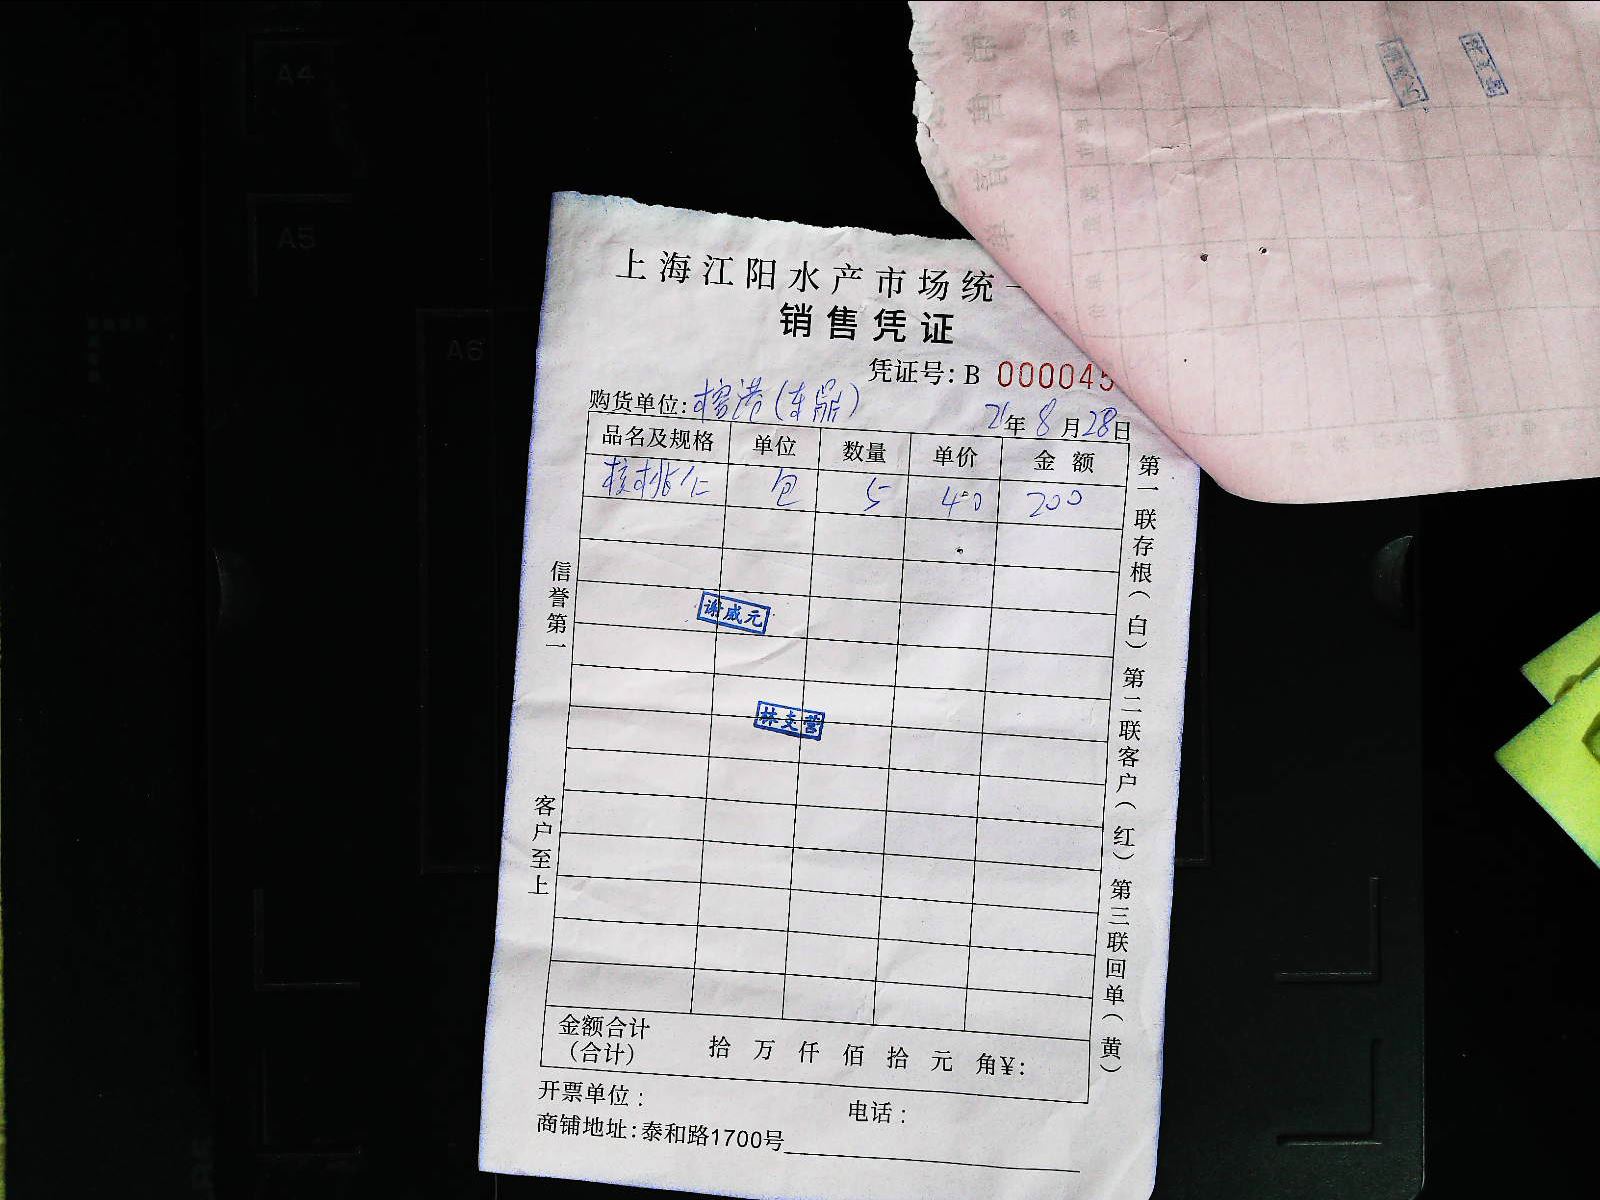 上海江阳水产市场统一
销售凭证
凭证号: B 000045
购货单位: 榕港(东鼎) 21年 8月28日
品名及规格 单位 数量 单价 金额
核桃仁 包 5 40 200
谢威元
林支营
信誉第一
客户至上
第一联存根(白) 第二联客户(红) 第三联回单(黄)
金额合计
(合计) 拾 万 仟 佰 拾 元 角¥:
开票单位: 电话:
商铺地址: 泰和路1700号
A4
A5
A6